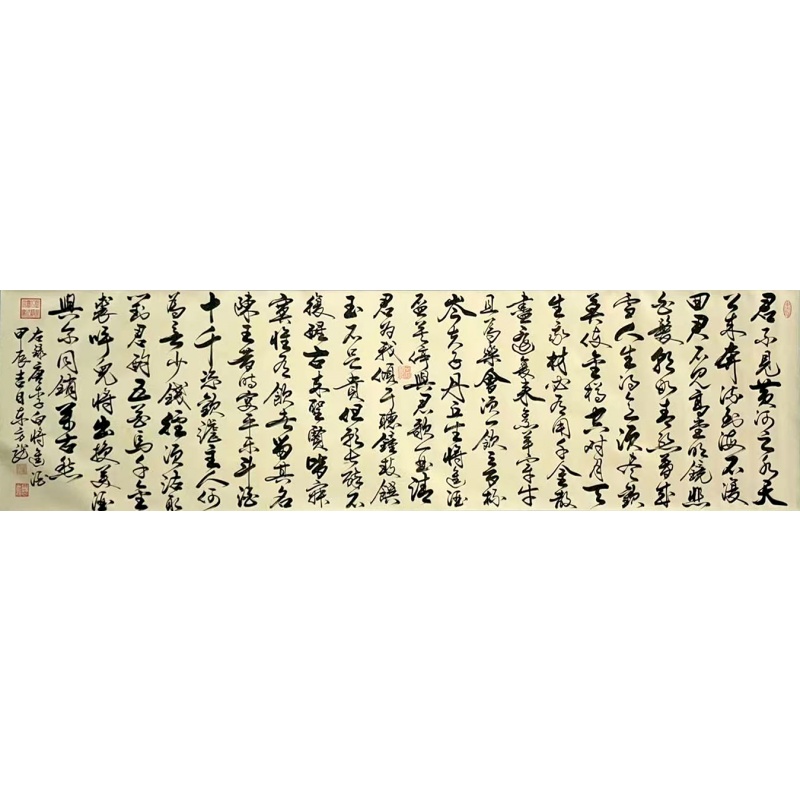 君不見黃河之水天
上來奔流到海不復
回君不見高堂明鏡悲
白髮朝如青絲暮成
雪人生得意須盡歡
莫使金樽空對月天
生我材必有用千金散
盡還復來烹羊宰牛
且為樂會須一飲三百杯
岑夫子丹丘生將進酒
盃莫停與君歌一曲請
君為我傾耳聽鐘鼓饌
玉不足貴但願長醉不
復醒古來聖賢皆寂
寞惟有飲者留其名
陳王昔時宴平樂斗酒
十千恣歡謔主人何
為言少錢徑須沽取
對君酌五花馬千金
裘呼兒將出換美酒
與爾同銷萬古愁
右錄唐李白將進酒
甲辰吉日東方